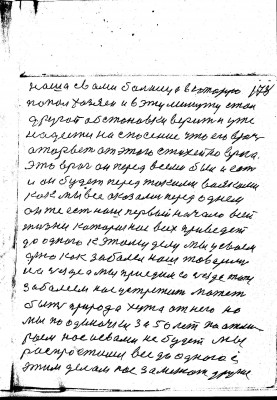 наша с вами больница в которую 174
попал хозяин и в эту минуту стал
другой обстановки верит и уже
надеется на спасение что его врач
оторвет от этого стихейно врага.
Это враг он перед всеми был и есть
и он будет перед такими вашими
как мы все сказали перед одним
он же есть наш первый начало всей
жизни которые нас всех приведет
до одного к этому делу мы узнаем
дето как заболел наш товарищ
на чего а мы приедим со чего тоже
заболеем нас устретит может
быть природа хужа от него но
мы по одиночки за 50 лет по отми
раем нас с вами не будет мы
распростимся все до одного с
этим делом нас заменют други